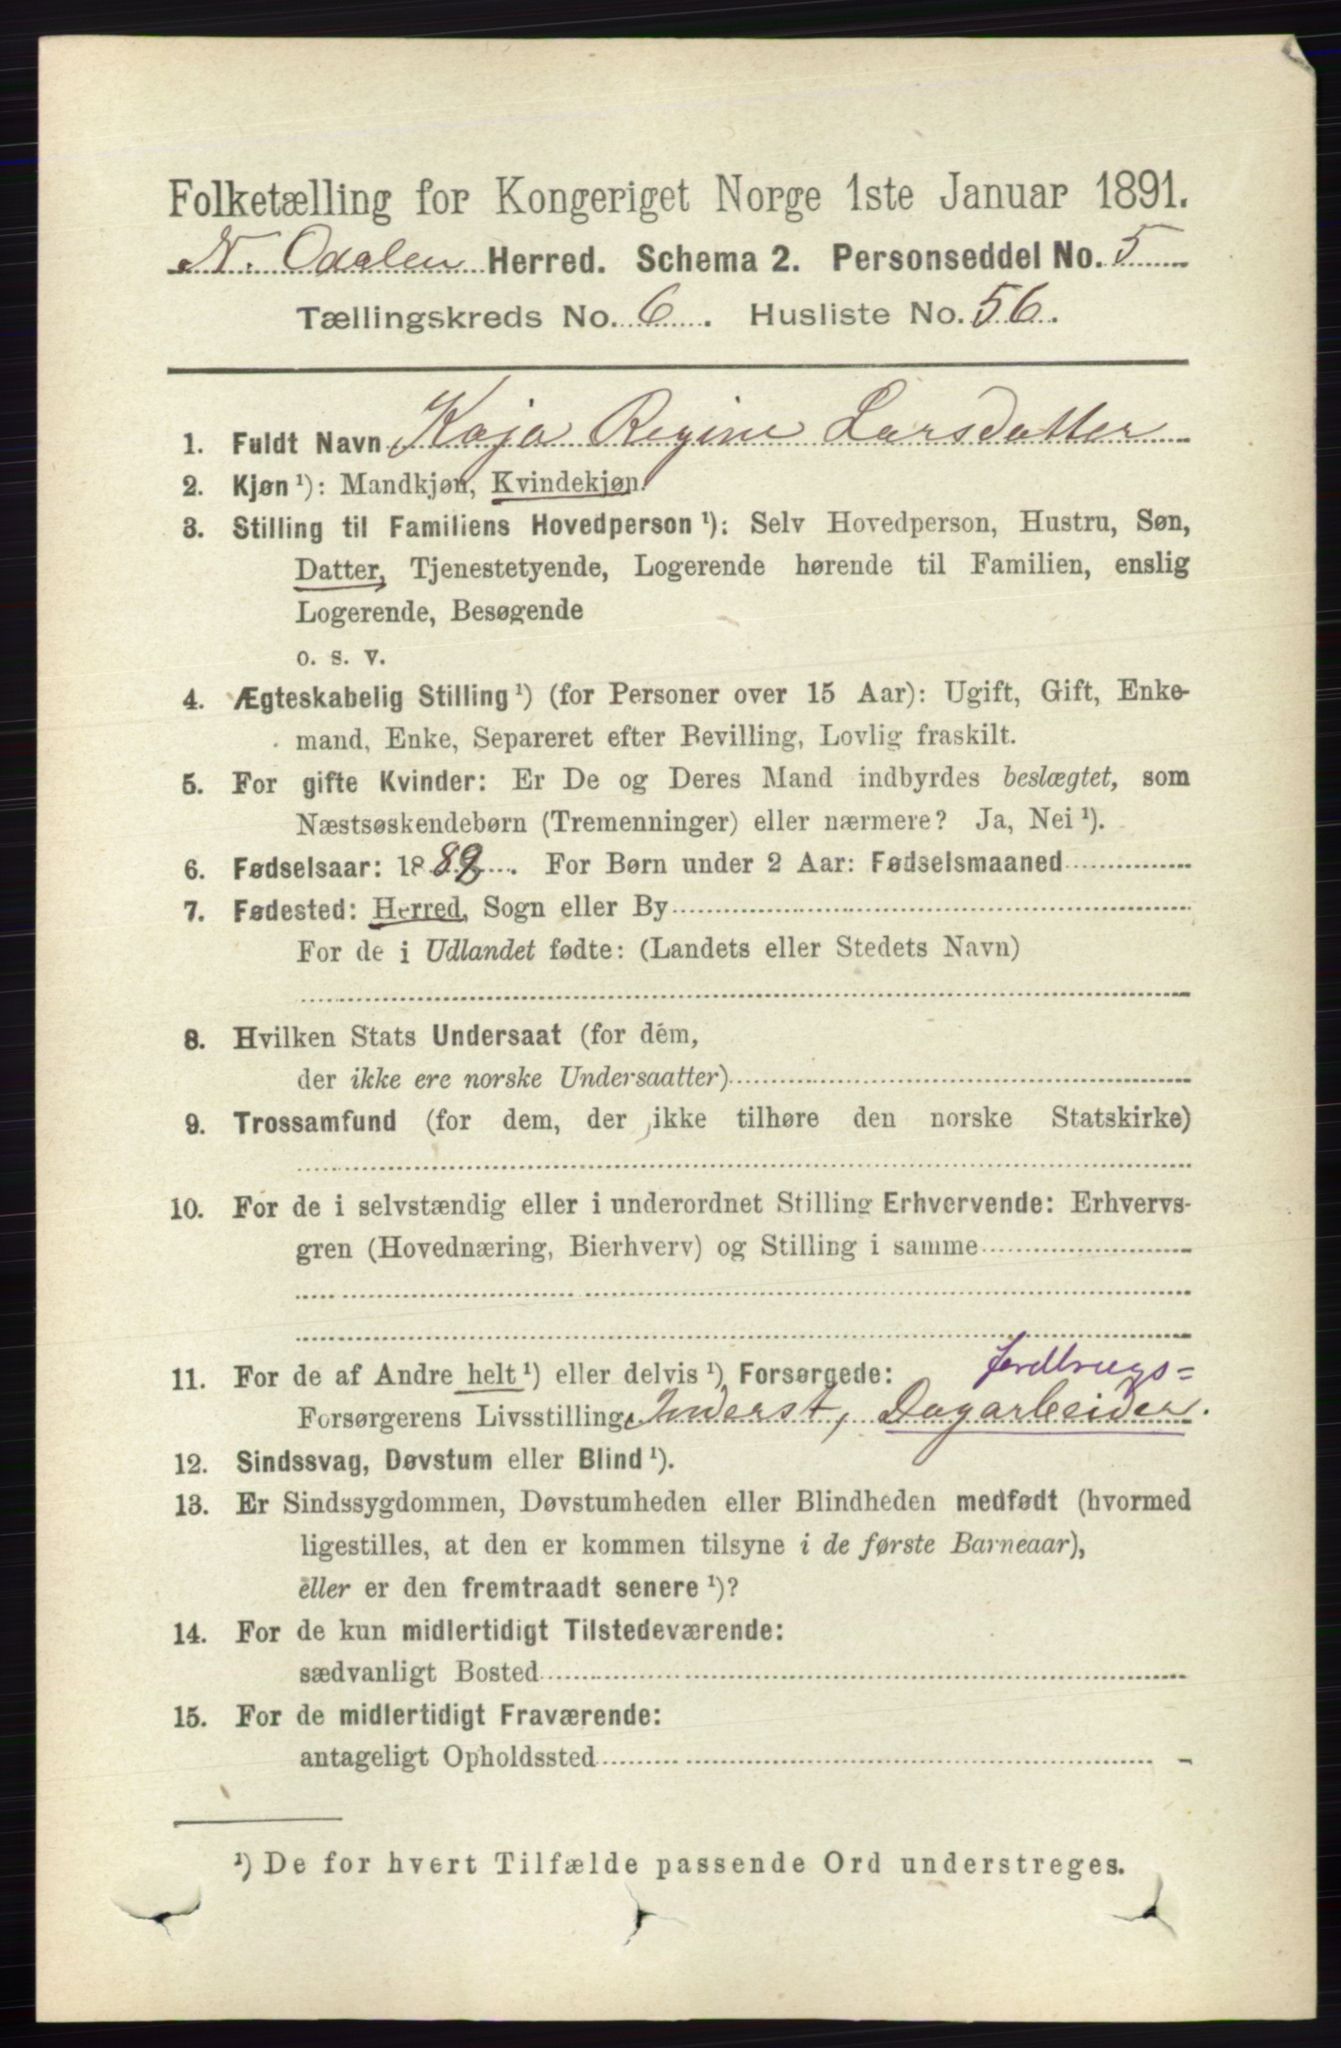 Folketælling for Kongeriget Norge 1ste Januar 1891.
N. Odalen Herred. Schema 2. Personseddel No. 5
Tællingskreds No. 6. Husliste No. 56.
1. Fuldt Navn Kaja Regine Larsdatter
2. Kjøn ¹): Mandkjøn, Kvindekjøn.
3. Stilling til Familiens Hovedperson ¹): Selv Hovedperson, Hustru, Søn,
Datter, Tjenestetyende, Logerende hørende til Familien, enslig
Logerende, Besøgende
o. s. v.
4. Ægteskabelig Stilling ¹) (for Personer over 15 Aar): Ugift, Gift, Enke-
mand, Enke, Separeret efter Bevilling, Lovlig fraskilt.
5. For gifte Kvinder: Er De og Deres Mand indbyrdes beslægtet, som
Næstsøskendebørn (Tremenninger) eller nærmere? Ja, Nei ¹).
6. Fødselsaar: 1882. For Børn under 2 Aar: Fødselsmaaned
7. Fødested: Herred, Sogn eller By
For de i Udlandet fødte: (Landets eller Stedets Navn)
8. Hvilken Stats Undersaat (for dem,
der ikke ere norske Undersaatter)
9. Trossamfund (for dem, der ikke tilhøre den norske Statskirke)
10. For de i selvstændig eller i underordnet Stilling Erhvervende: Erhvervs-
gren (Hovednæring, Bierhverv) og Stilling i samme
11. For de af Andre helt ¹) eller delvis ¹) Forsørgede: Jordbrugs=
Forsørgerens Livsstilling Inderst, Dagarbeider.
12. Sindssvag, Døvstum eller Blind ¹).
13. Er Sindssygdommen, Døvstumheden eller Blindheden medfødt (hvormed
ligestilles, at den er kommen tilsyne i de første Barneaar),
eller er den fremtraadt senere ¹)?
14. For de kun midlertidigt Tilstedeværende:
sædvanligt Bosted
15. For de midlertidigt Fraværende:
antageligt Opholdssted
¹) De for hvert Tilfælde passende Ord understreges.